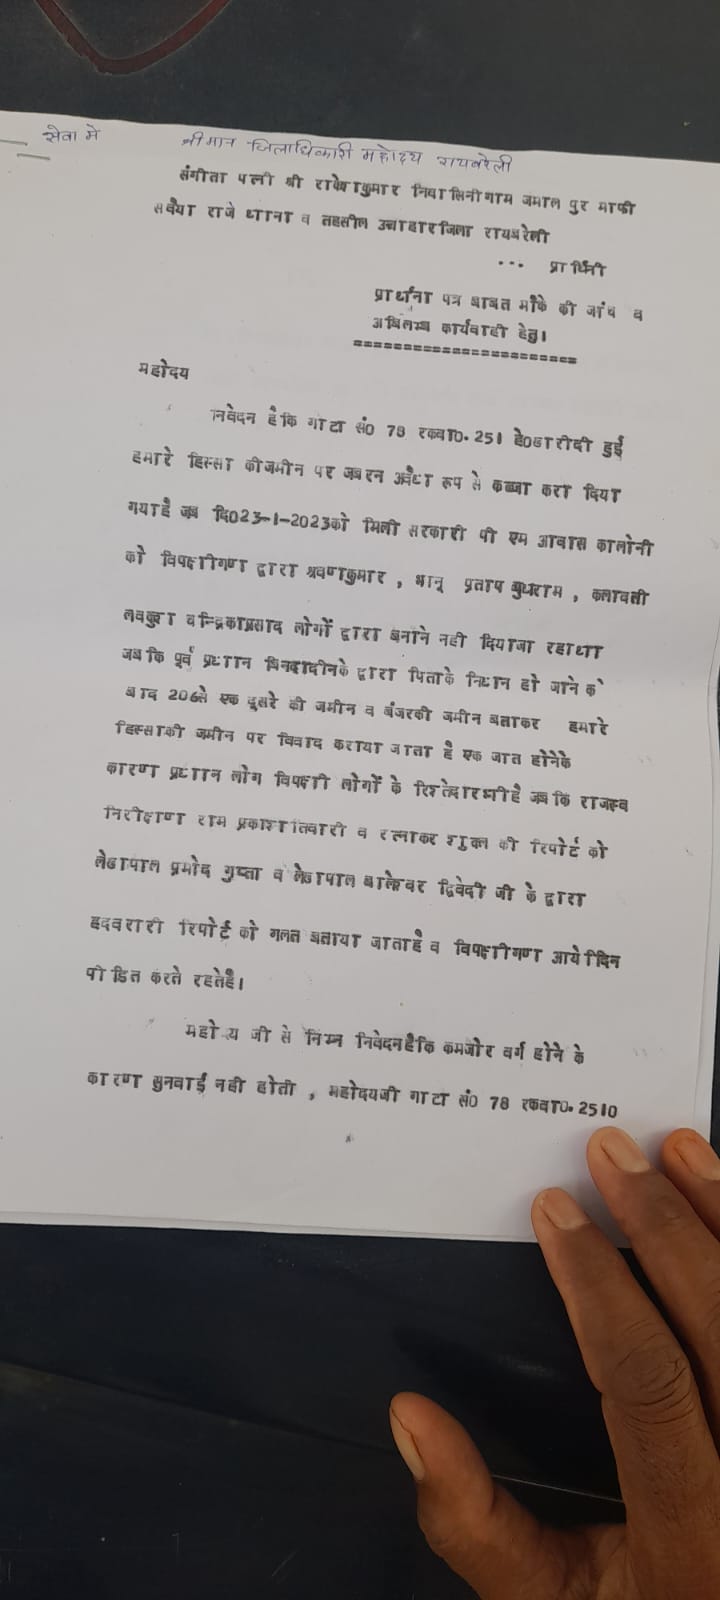 सेवा मे श्रीमान जिलाधिकारी महोदय रायबरेली
संगीता पत्नी श्री राकेशकुमार निवासिनीग्राम जमाल पुर माफी
सवैया राजे थाना व तहसील उचाहारजिला रायबरेली
... प्रार्थिनी
प्रार्थना पत्र बाबत मौके की जांच व
अबिलम्ब कार्यवाही हेतु।
=======================
महोदय
निवेदन हैकि गाटा सं0 78 रकवा0.251 हे0खरीदी हुई
हमारे हिस्सा कीजमीन पर जबरन अवैध रूप से कब्जा करा दिया
गयाहै जब दि023-1-2023को मिली सरकारी पी एम आवास कालोनी
को विपक्षीगण द्वारा श्रवणकुमार , भानू प्रताप बुधराम , कलावती
लवकुश चन्द्रिकाप्रसाद लोगों द्वारा बनाने नही दियाजा रहाथा
जब कि पूर्व प्रधान बिनदादीनके द्वारा पिताके निधन हो जाने के
बाद 206से एक दूसरे की जमीन व बंजरकी जमीन बताकर हमारे
हिस्साकी जमीन पर विवाद कराया जाता है एक जात होनेके
कारण प्रधान लोग विपक्षी लोगों के रिश्तेदारभीहै जब कि राजस्व
निरीक्षण राम प्रकाशतिवारी व रत्नाकर शुक्ल की रिपोर्ट को
लेखपाल प्रमोद गुप्ता व लेखपाल बालेश्वर द्विवेदी जी के द्वारा
हदवरारी रिपोर्ट को गलत बताया जाताहै व विपक्षीगण आयेदिन
पीडित करते रहतेहै।
महो य जी से निम्न निवेदनहैकि कमजोर वर्ग होने के
कारण सुनवाई नही होती , महोदयजी गाटा सं0 78 रकवा0.2510